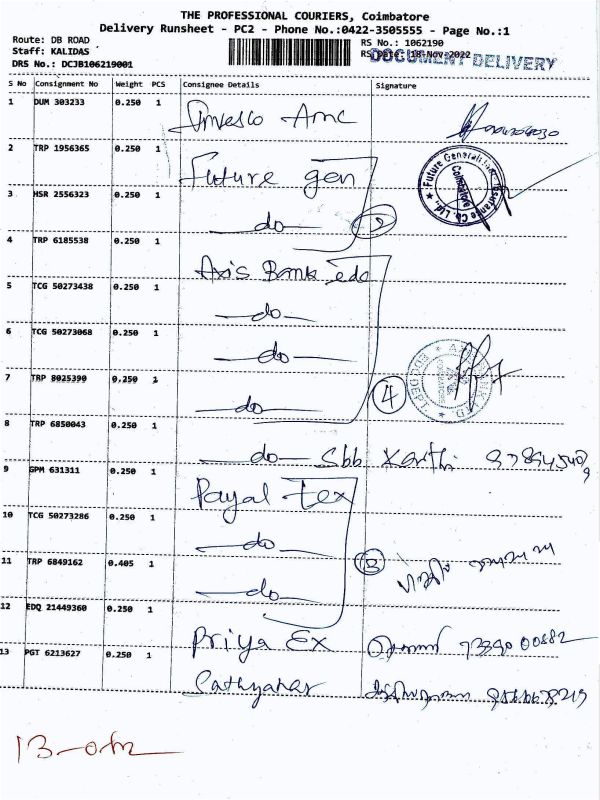 THE PROFESSIONAL COURIERS, Coimbatore
Delivery Runsheet - PC2 - Phone No.:0422-3505555 - Page No.:1
Route: DB ROAD
Staff: KALIDAS
DRS No.: DCJB106219001
RS No.: 1062190
RS Date: 18-Nov-2022
DOCUMENT DELIVERY
S No Consignment No Weight PCS Consignee Details Signature
1 DUM 303233 0.250 1 Invesco Amc
2 TRP 1956365 0.250 1 Future gen
3 HSR 2556323 0.250 1 do 2
Future Generali Coimbatore Co. Ltd.,
4 TRP 6185538 0.250 1 Axis Bank edc
5 TCG 50273438 0.250 1 do
6 TCG 50273068 0.250 1 do
7 TRP 8025390 0.250 1 do 4
8 TRP 6850043 0.250 1 do Sbb
9 GPM 631311 0.250 1 Payal tex
10 TCG 50273286 0.250 1 do
11 TRP 6849162 0.405 1 do 3
12 EDQ 21449360 0.250 1 Priya Ex
13 PGT 6213627 0.250 1